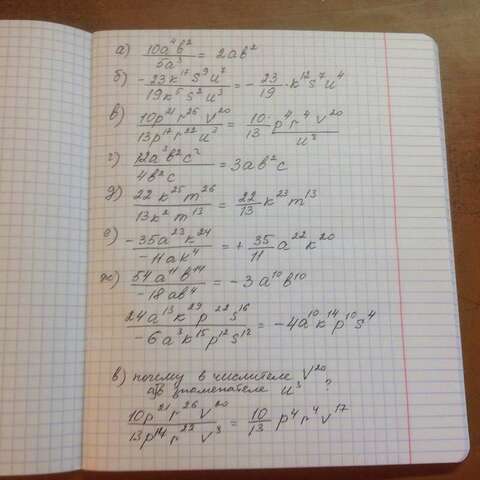 а) 10a⁴b²/5a³ = 2ab²
б) -23k¹⁷s⁹u⁷/19k⁵s²u³ = -23/19·k¹²s⁷u⁴
в) 10p²¹r²⁶v²⁰/13p¹⁷r²²u³ = 10/13·p⁴r⁴v²⁰/u³
г) 12a³b²c²/4b²c = 3ab²c
д) 22k²⁵m²⁶/13k²m¹³ = 22/13 k²³m¹³
е) -35a²³k²⁴/-11ak⁴ = +35/11 a²²k²⁰
ж) 54a¹¹b¹⁴/-18ab⁴ = -3a¹⁰b¹⁰
24a¹³k²⁹p²²s¹⁶/-6a³k¹⁵p¹²s¹² = -4a¹⁰k¹⁴p¹⁰s⁴
в) почему в числителе v²⁰
а в знаменателе u³ ?
10p²¹r²⁶v²⁰/13p¹⁷r²²v³ = 10/13 p⁴r⁴v¹⁷